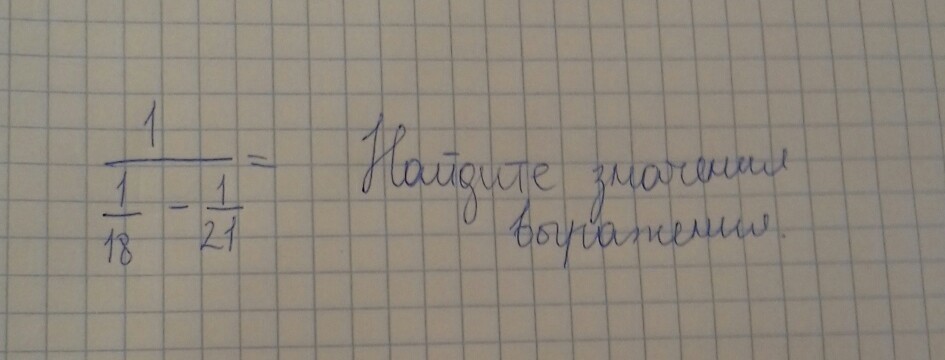 1
1/18 - 1/21 =
Найдите значения
выражения.